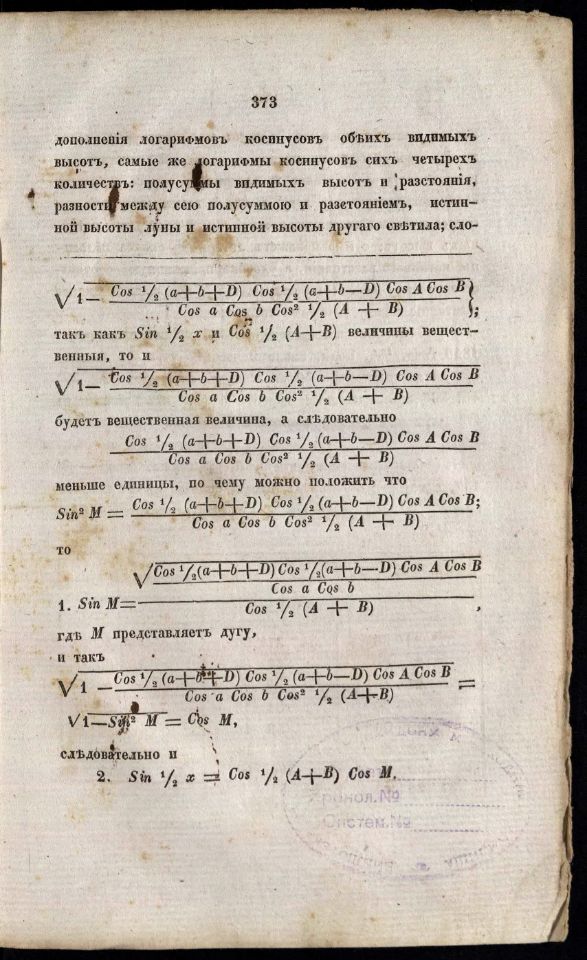 373
дополненія логарифмовъ косинусовъ обѣихъ видимыхъ
высотъ, самые же логарифмы косинусовъ сихъ четырехъ
количествъ: полусуммы видимыхъ высотъ и разстоянія,
разности между сею полусуммою и разстояніемъ, истин-
ной высоты луны и истинной высоты другаго свѣтила; сло-
√1— Cos ½ (a+b+D) Cos ½ (a+b—D) Cos A Cos B }
Cos a Cos b Cos² ½ (A + B) ;
такъ какъ Sin ½ x и Cos ½ (A+B) величины вещест-
венныя, то и
√1— Cos ½ (a+b+D) Cos ½ (a+b—D) Cos A Cos B
Cos a Cos b Cos² ½ (A + B)
будетъ вещественная величина, а слѣдовательно
Cos ½ (a+b+D) Cos ½ (a+b—D) Cos A Cos B
Cos a Cos b Cos² ½ (A + B)
меньше единицы, по чему можно положить что
Sin² M = Cos ½ (a+b+D) Cos ½ (a+b—D) Cos A Cos B;
Cos a Cos b Cos² ½ (A + B)
то
√Cos ½(a+b+D) Cos ½(a+b—D) Cos A Cos B
Cos a Cos b
1. Sin M= Cos ½ (A + B) ,
гдѣ M представляетъ дугу,
и такъ
√1 — Cos ½ (a+b+D) Cos ½ (a+b—D) Cos A Cos B =
Cos a Cos b Cos² ½ (A+B)
√1—Sin² M = Cos M,
слѣдовательно и
2. Sin ½ x = Cos ½ (A+B) Cos M.
Хронол.№
Систем.№